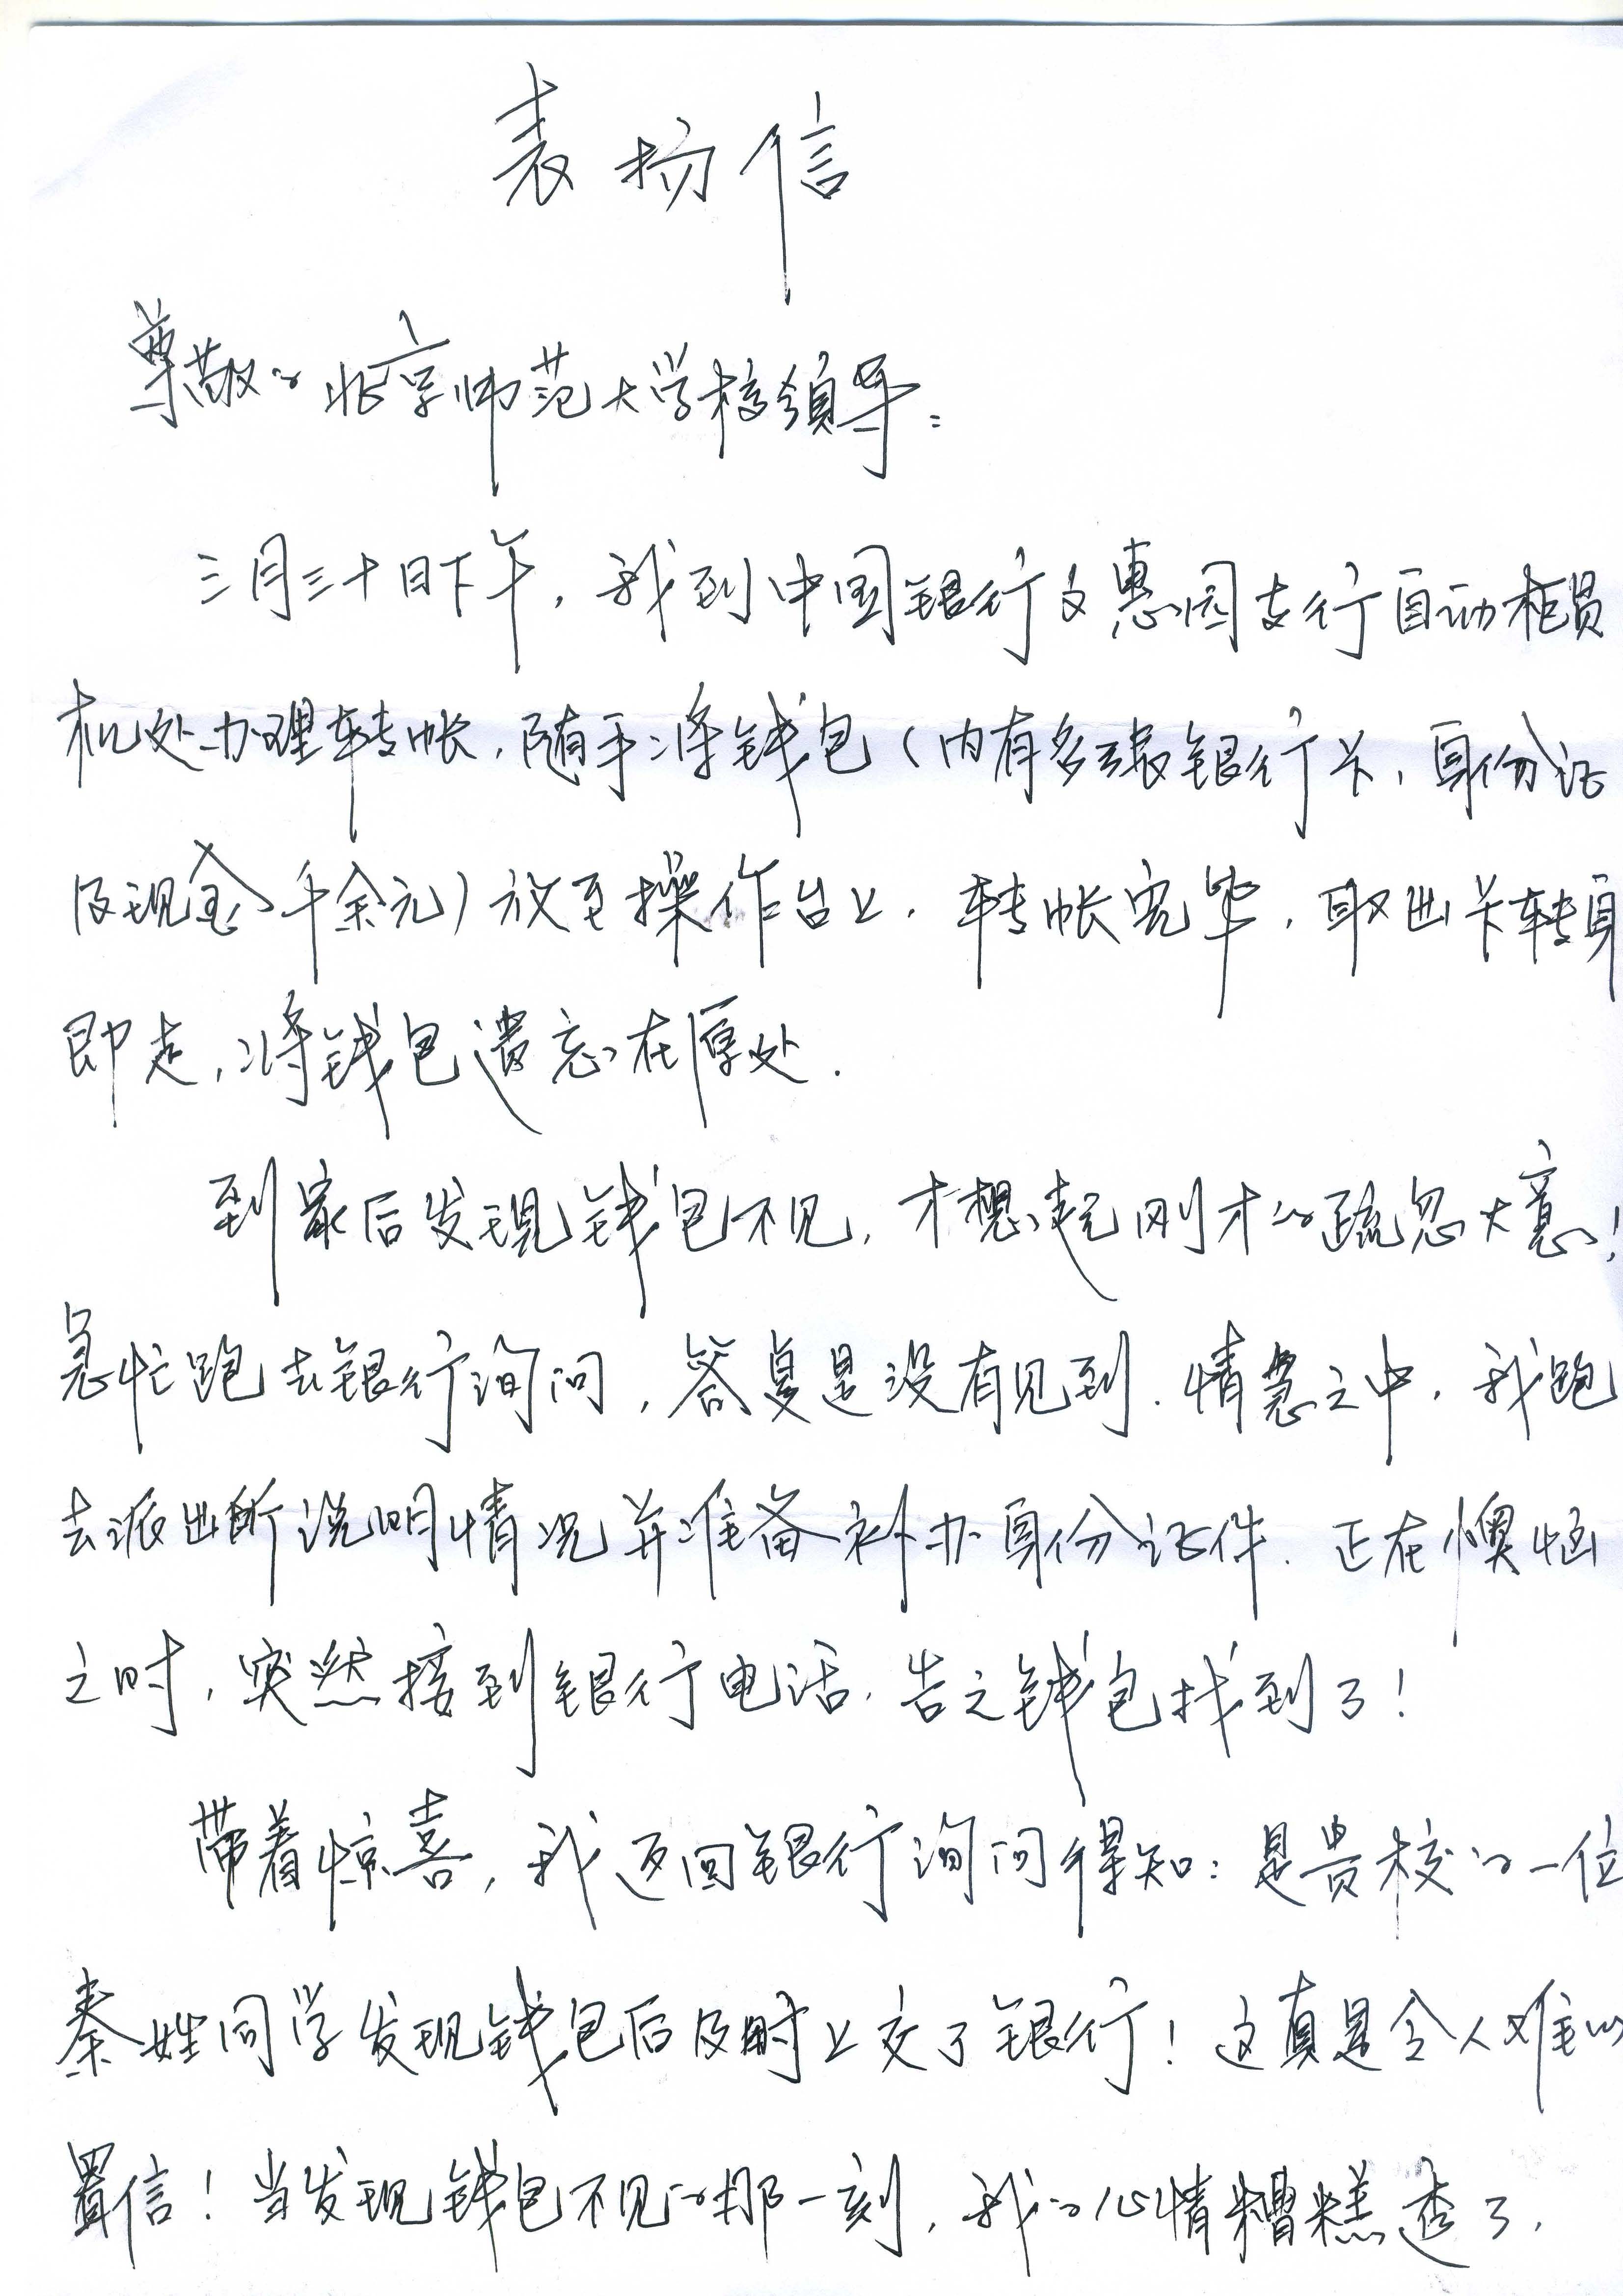 表扬信
尊敬的北京师范大学校领导：
三月三十日下午，我到中国银行文惠园支行自动柜员
机处办理转帐，随手将钱包（内有多张银行卡、身份证
及现金千余元）放至操作台上，转帐完毕，取出卡转身
即走，将钱包遗忘在原处.
到家后发现钱包不见，才想起刚才的疏忽大意！
急忙跑去银行询问，答复是没有见到.情急之中，我跑
去派出所说明情况并准备补办身份证件.正在懊恼
之时，突然接到银行电话，告之钱包找到了！
带着惊喜，我返回银行询问得知：是贵校的一位
秦姓同学发现钱包后及时上交了银行！这真是令人难以
置信！当发现钱包不见的那一刻，我的心情糟糕透了，